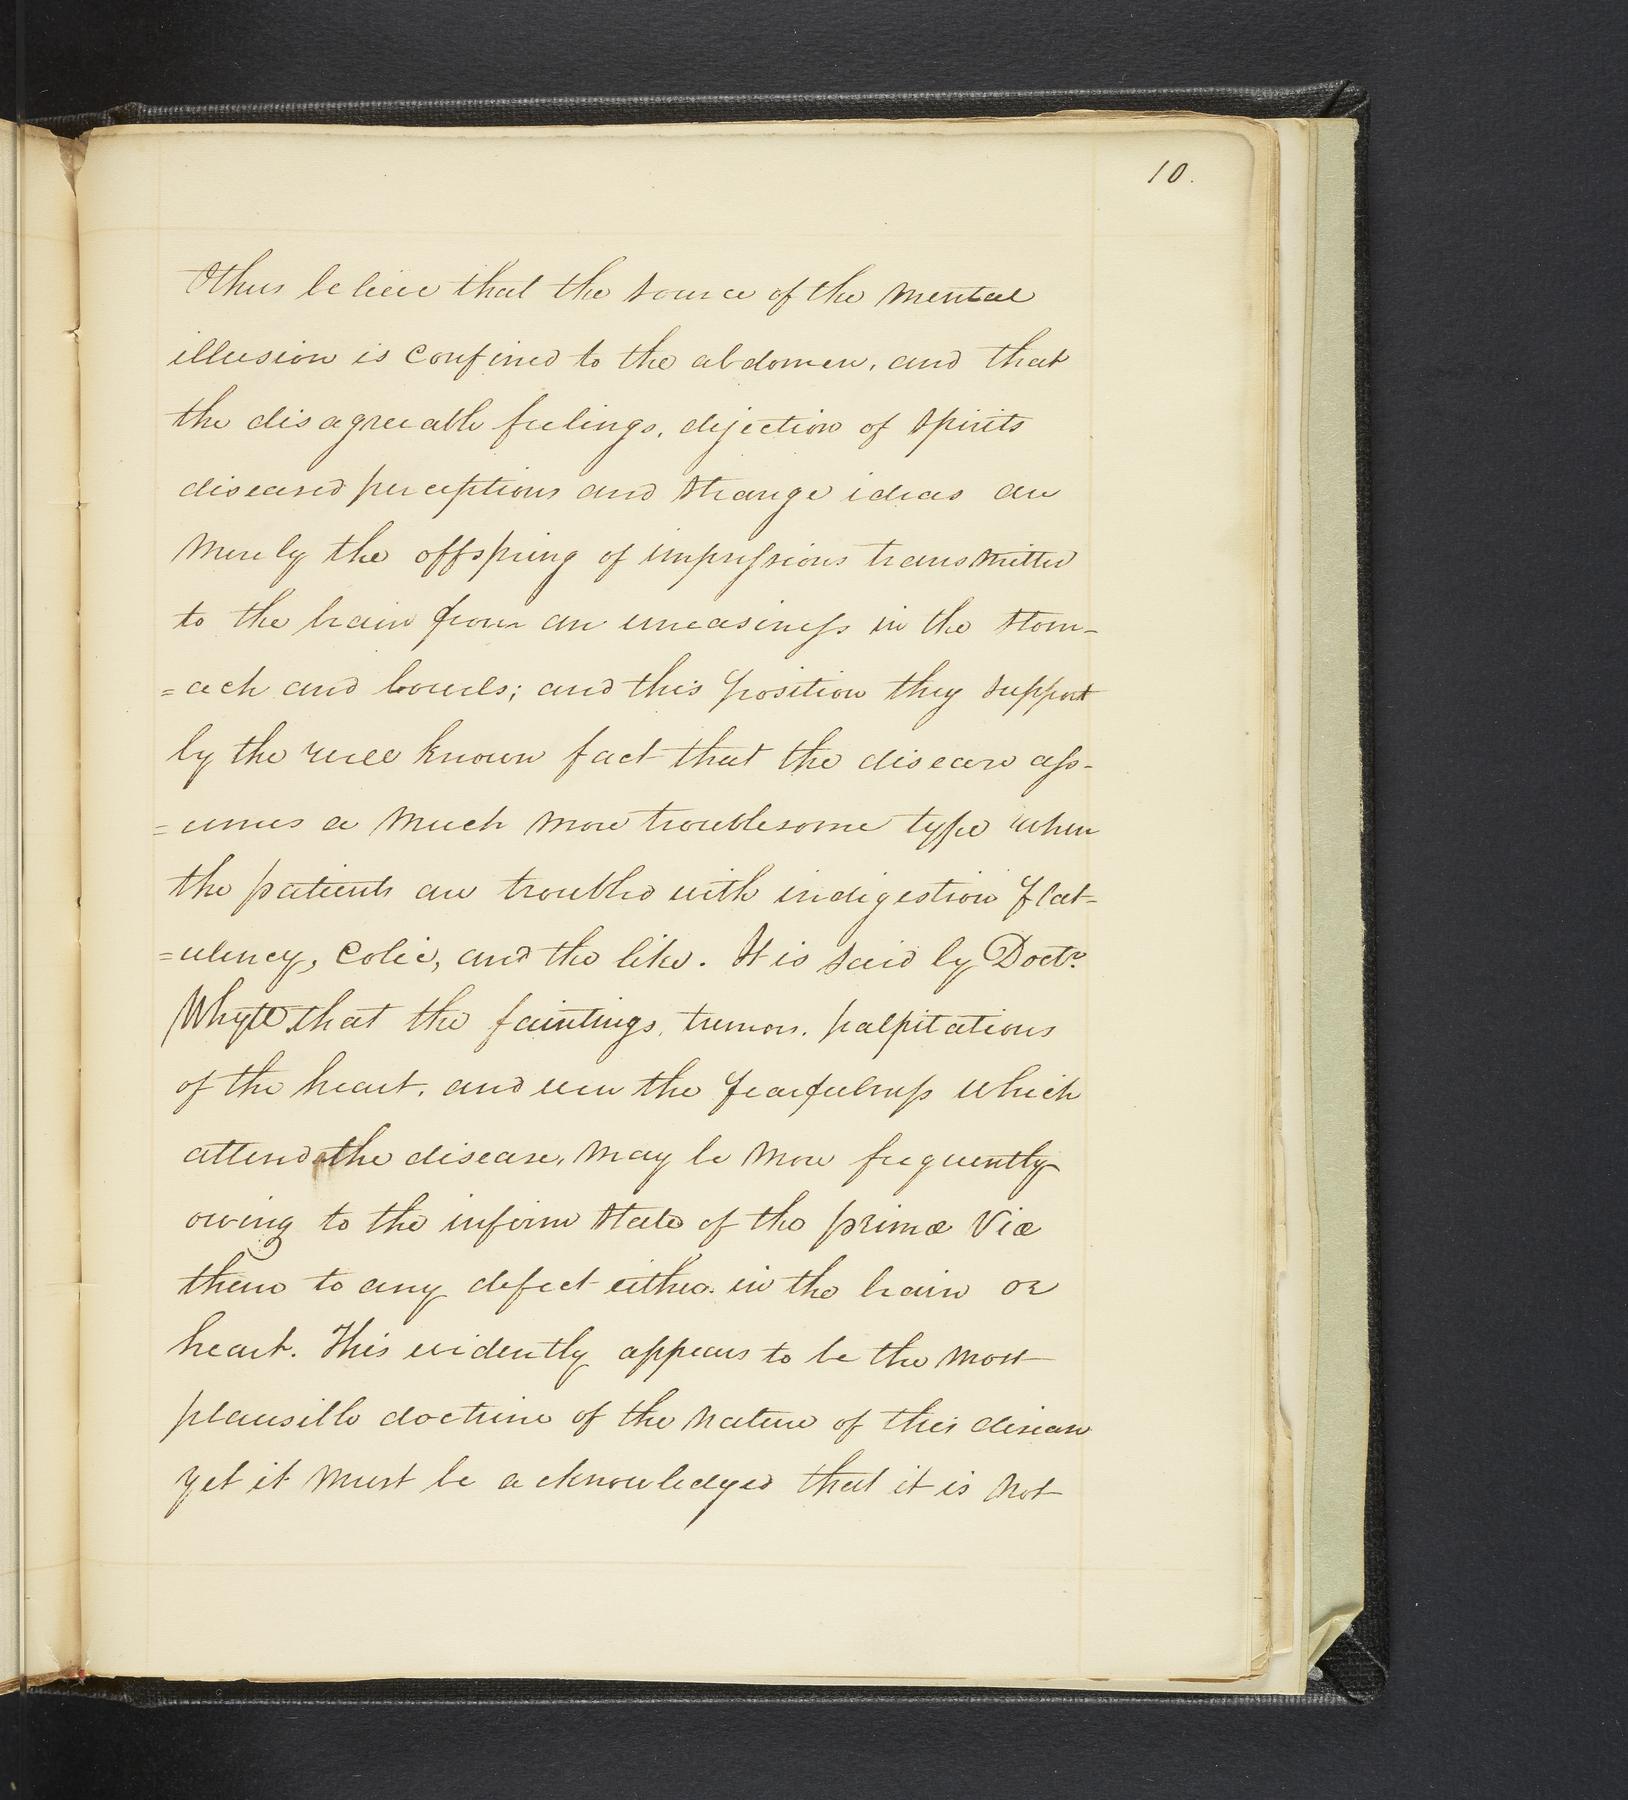 10.
Others believe that the source of the mental
illusion is confined to the abdomen, and that
the disagreeable feelings, dejection of spirits
diseased perceptions and strange ideas are
merely the offspring of impressions transmitted
to the brain from an uneasiness in the stom-
=ach and bowels; and this position they support
by the well known fact that the disease ass-
=umes a much more troublesome type when
the patients are troubled with indigestion flat-
=ulency, colic, and the like. It is said by Doctr.
Whytt that the faintings, tremors, palpitations
of the heart, and even the fearfulness which
attend the disease, may be more frequently
owing to the infirm state of the primæ viæ
then to any defect either in the brain or
heart. This evidently appears to be the most
plausible doctrine of the nature of this disease
yet it must be acknowledged that it is not